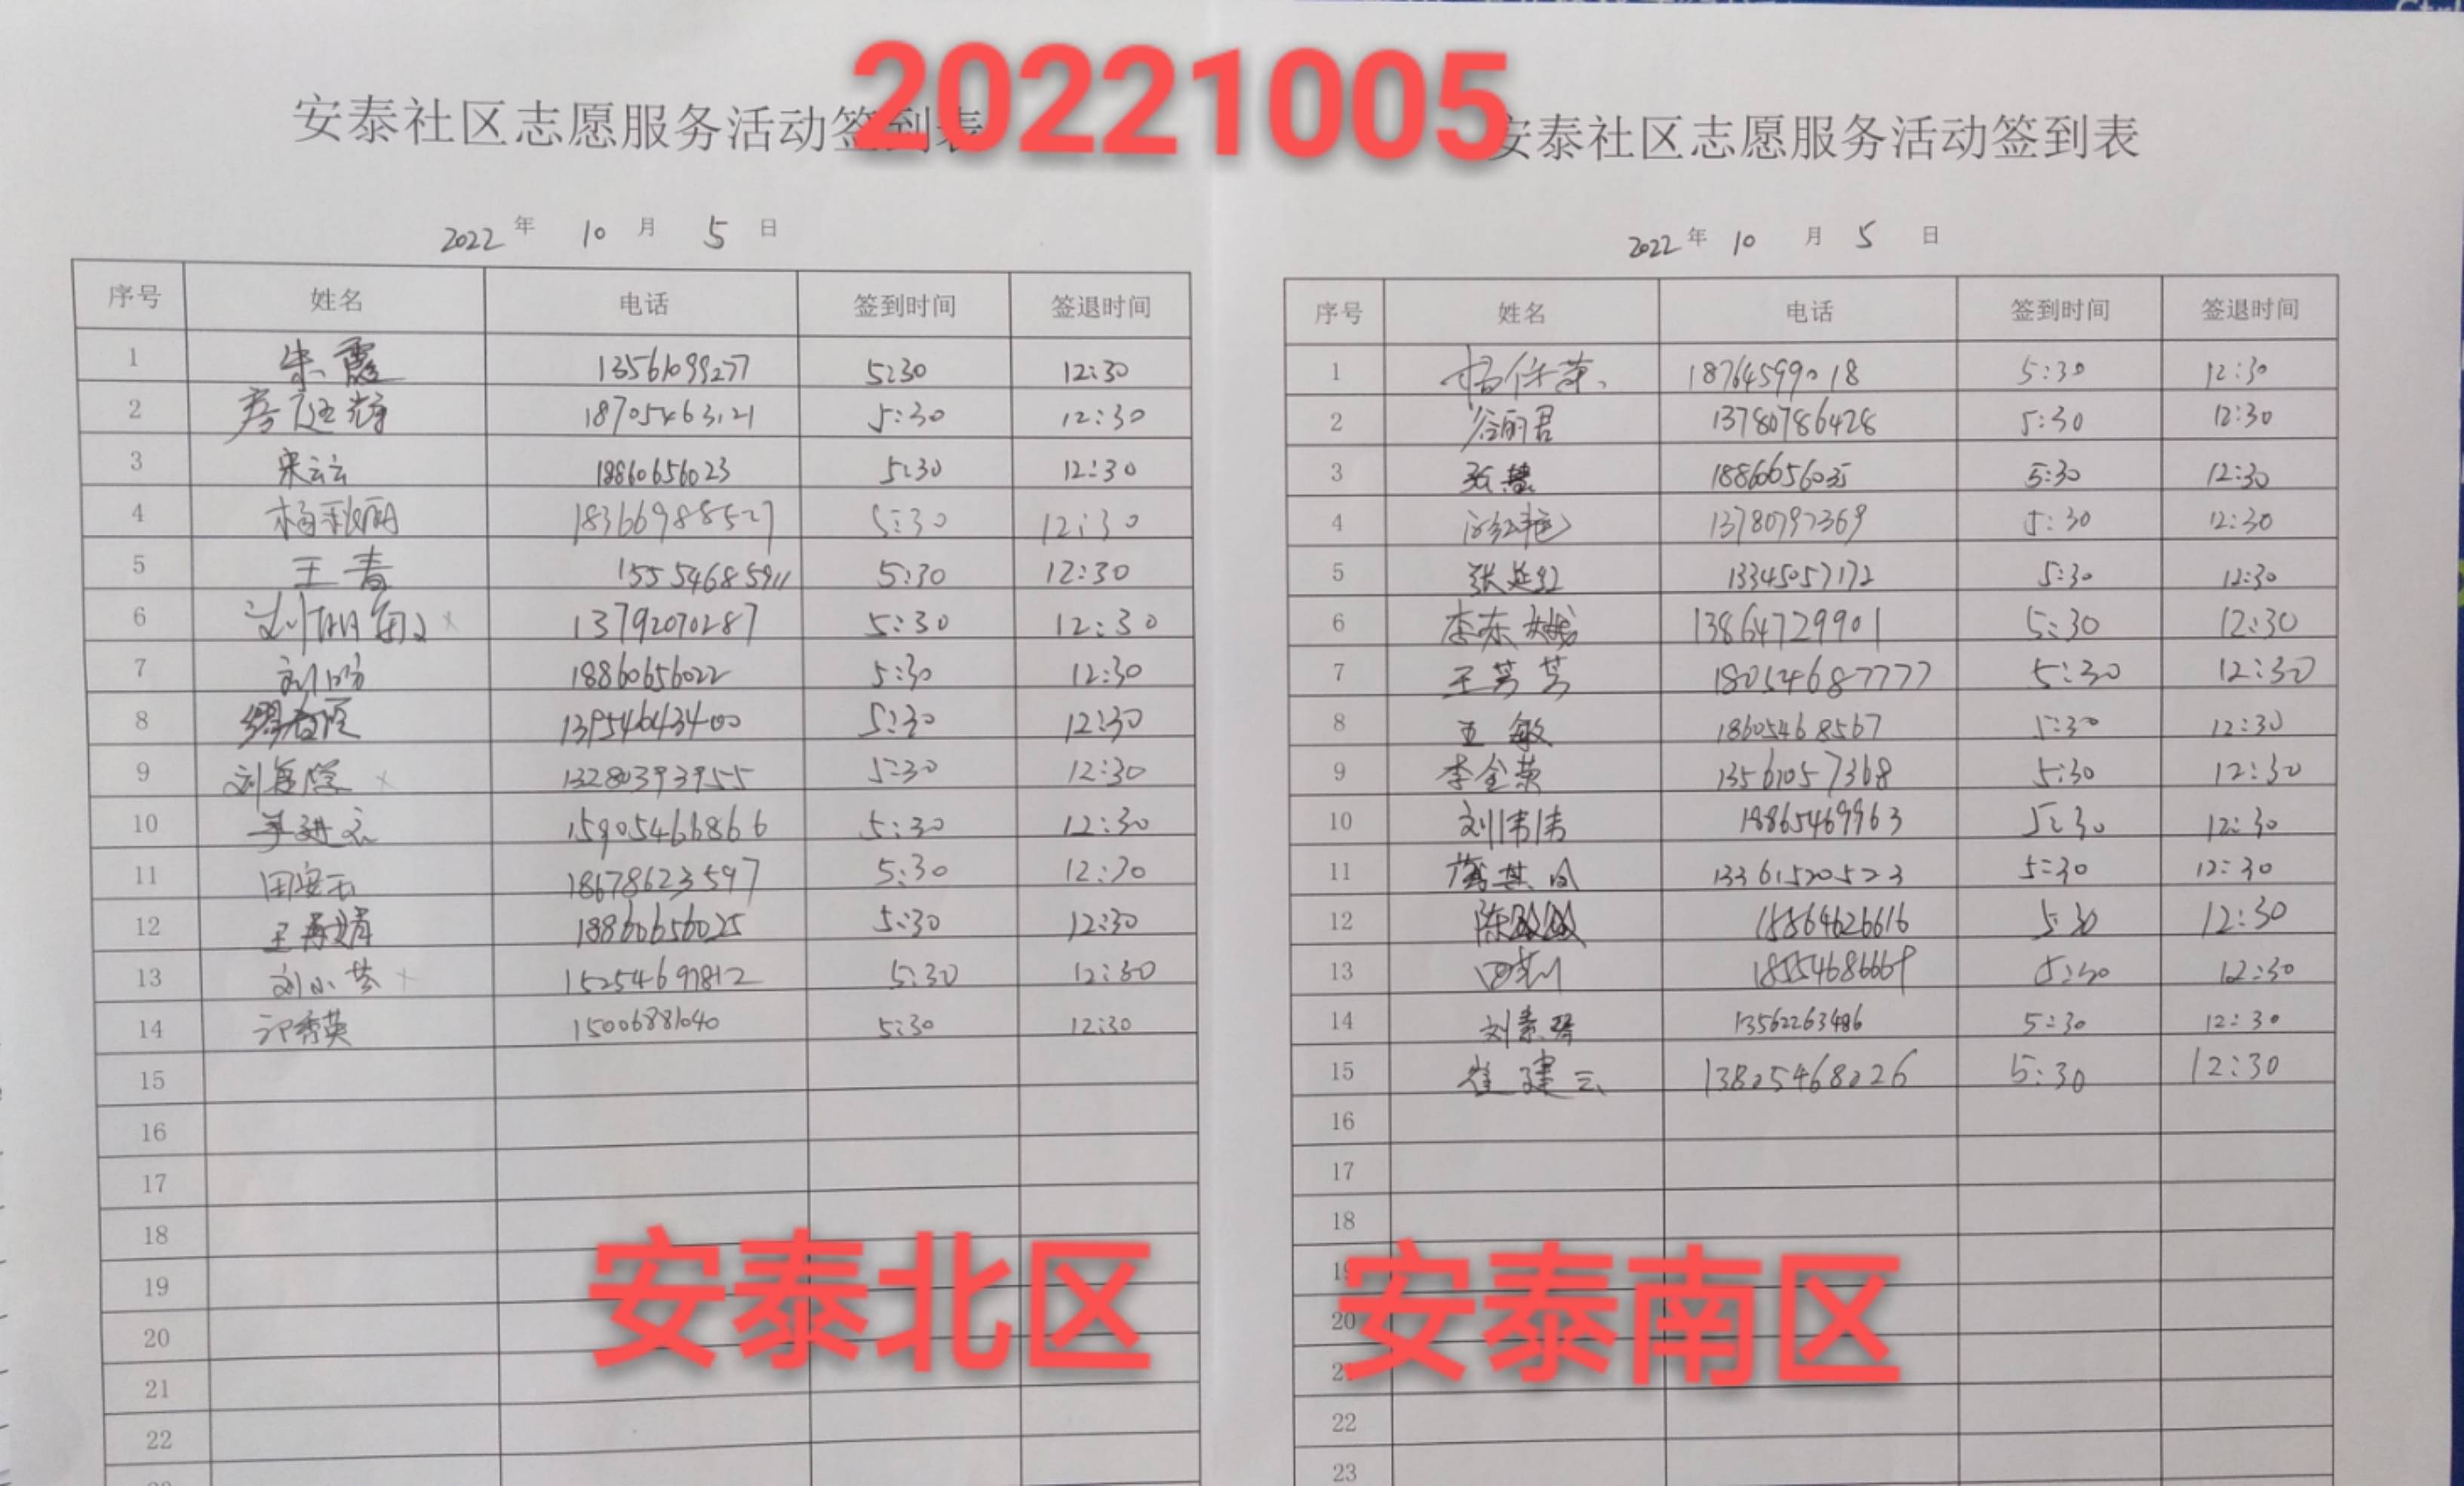 20221005
安泰社区志愿服务活动签到表
2022 年 10 月 5 日
序号 姓名 电话 签到时间 签退时间
1 朱霞 13561099277 5:30 12:30
2 彦廷辉 18705463121 5:30 12:30
3 宋云云 18860656023 5:30 12:30
4 杨秋丽 18366988527 5:30 12:30
5 王青 15554685911 5:30 12:30
6 刘明菊 13792070287 5:30 12:30
7 刘昉 18860656022 5:30 12:30
8 13954643400 5:30 12:30
9 刘 学 13280393955 5:30 12:30
10 15905466866 5:30 12:30
11 田安玉 18678623597 5:30 12:30
12 王 娟 18860656025 5:30 12:30
13 刘小芸 15254697812 5:30 12:30
14 祁秀英 15006881040 5:30 12:30
15
16
17
18
19
20
21
22
安泰北区
安泰社区志愿服务活动签到表
2022 年 10 月 5 日
序号 姓名 电话 签到时间 签退时间
1 18764599018 5:30 12:30
2 谷丽君 13780786428 5:30 12:30
3 张慧 5:30 12:30
4 红艳 13780797369 5:30 12:30
5 张延红 13345057172 5:30 12:30
6 李东娥 13864729901 5:30 12:30
7 王芳芳 18054687777 5:30 12:30
8 王敏 18605468567 5:30 12:30
9 李金荣 13561057368 5:30 12:30
10 刘伟伟 18865469963 5:30 12:30
11 13361520523 5:30 12:30
12 陈 15564626616 5:30 12:30
13 18554686669 5:30 12:30
14 刘素琴 13562263486 5:30 12:30
15 崔建云 13825468226 5:30 12:30
16
17
18
19
20
21
22
23
安泰南区